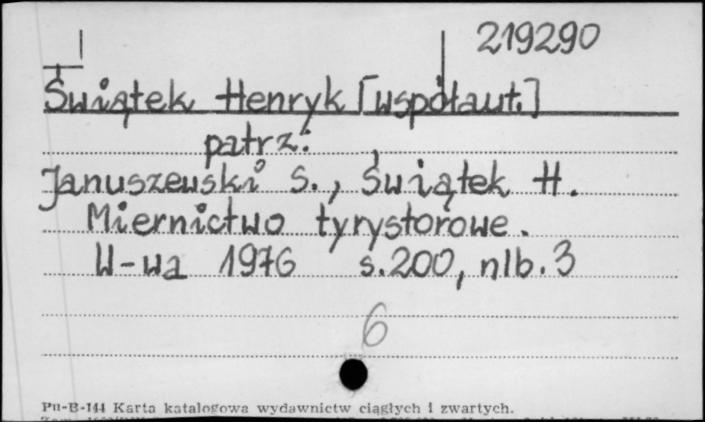 219290
Świątek Henryk [współaut.]
patrz:
Januszewski S., Świątek H.
Miernictwo tyrystorowe.
W-wa 1976 s.200, nlb.3
6
Pu-B-144 Karta katalogowa wydawnictw ciągłych i zwartych.